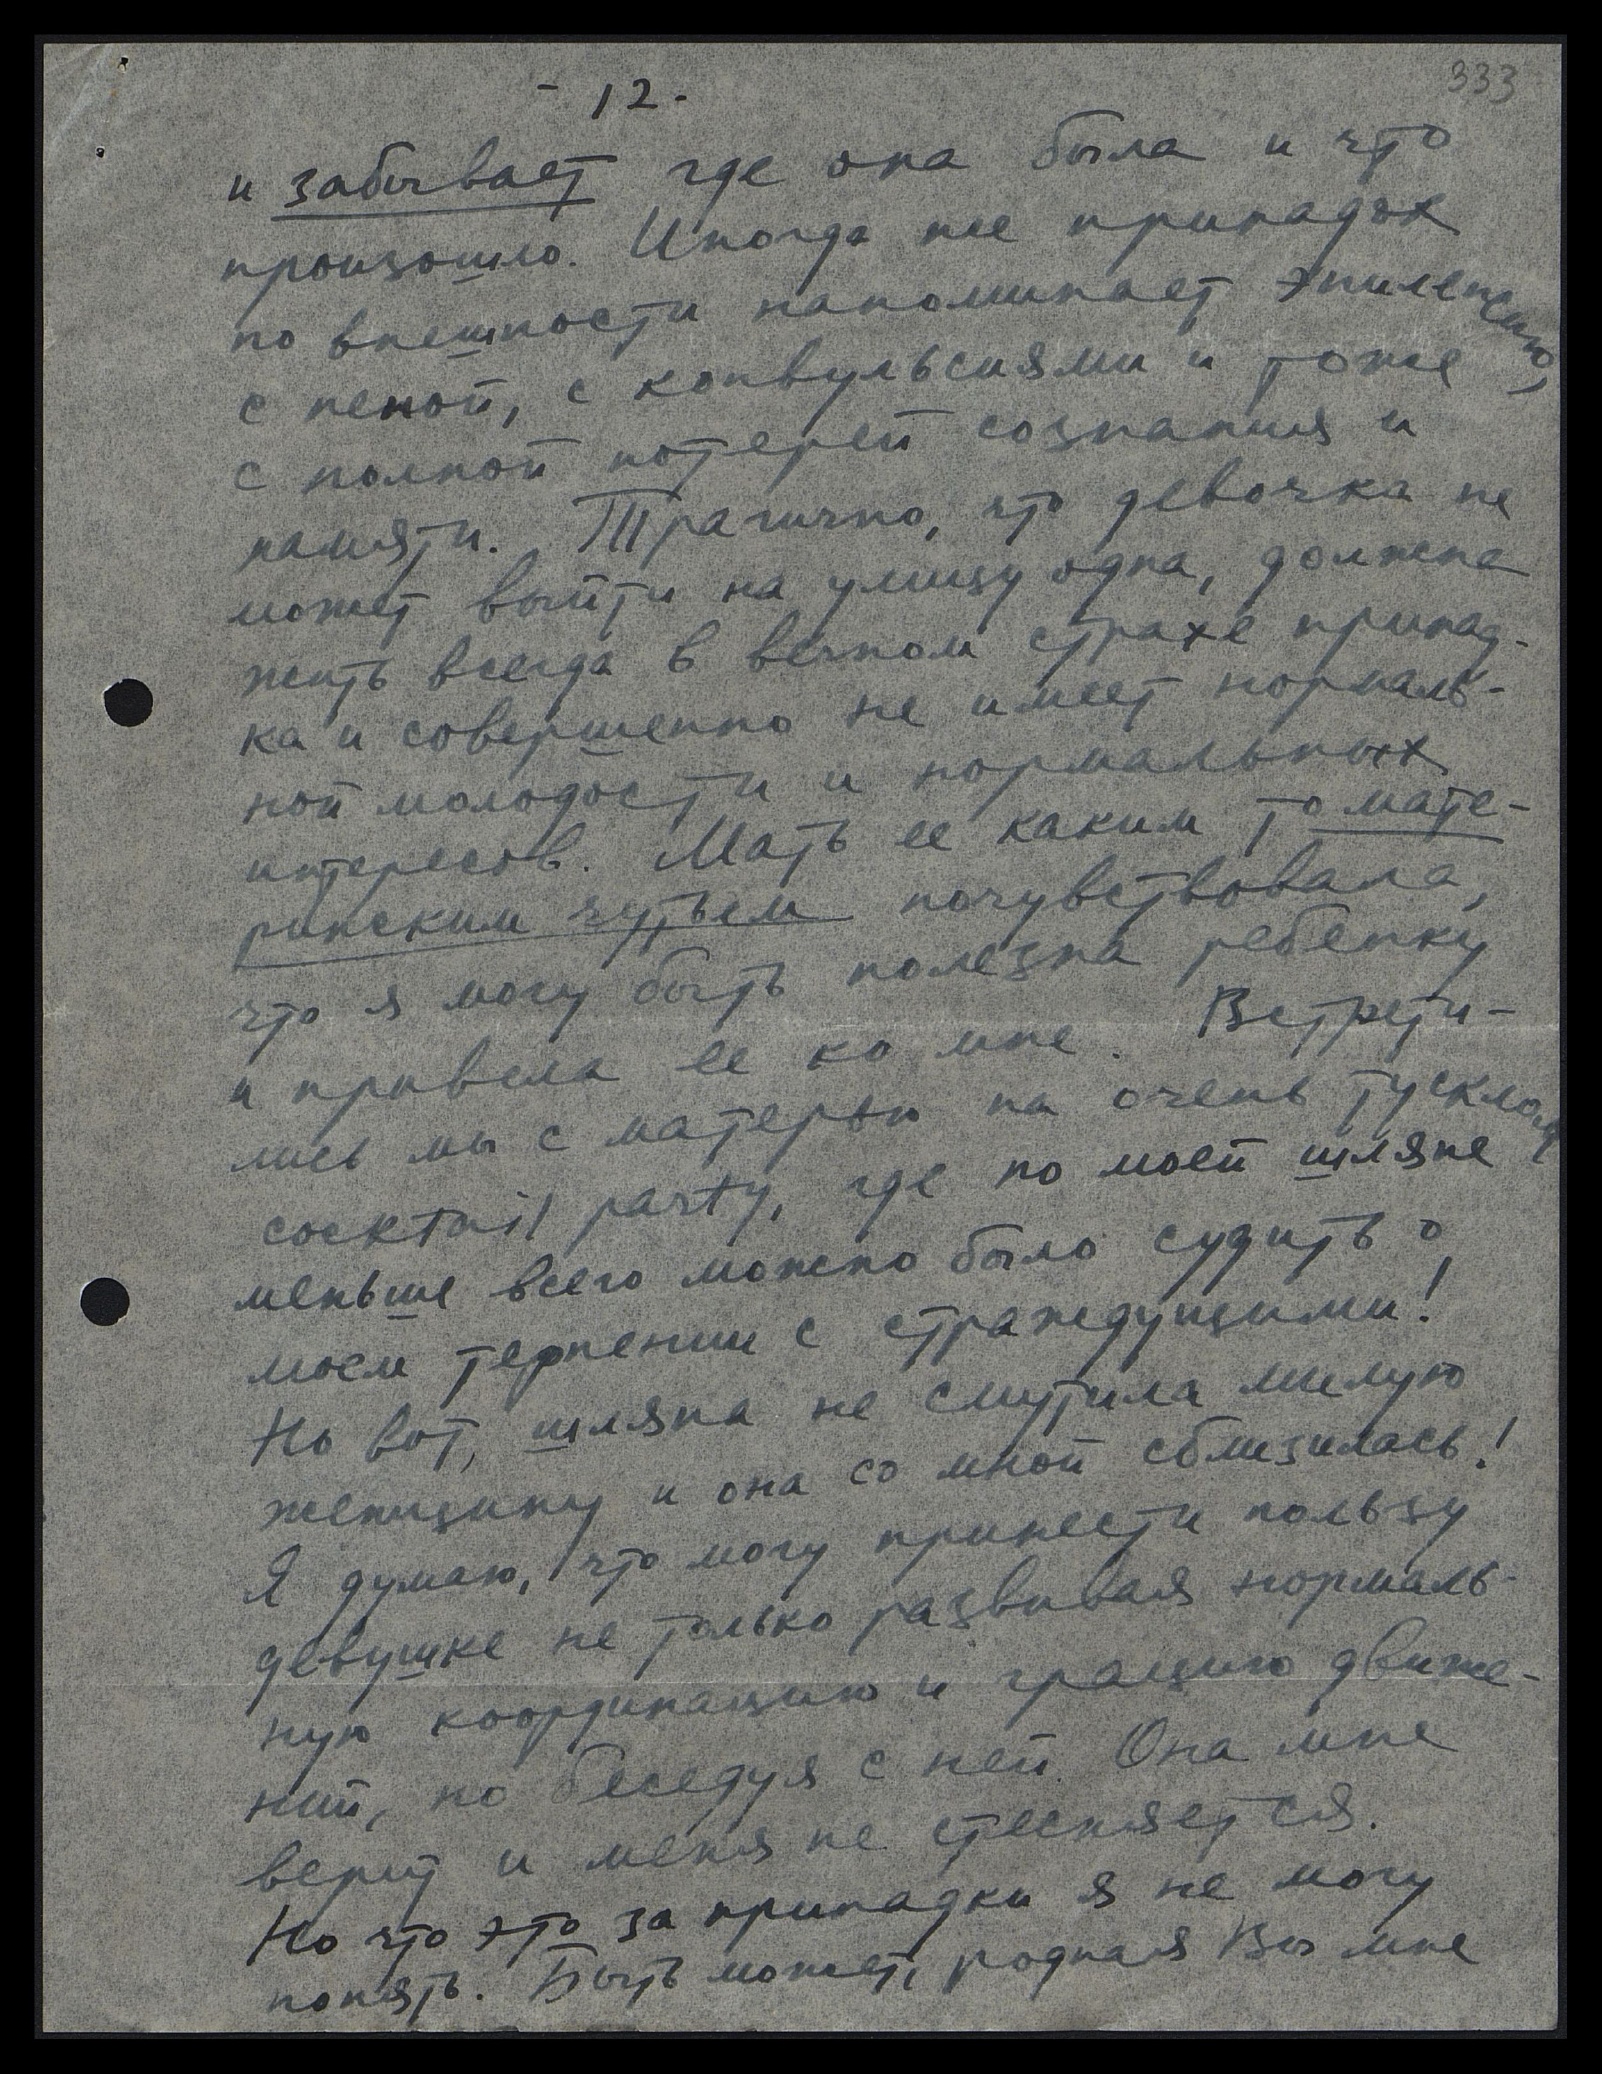 - 12 -
333
и забывает где она была и что
произошло. Иногда же припадок
по внешности напоминает эпилепсию,
с пеной, с конвульсиями и тоже
с полной потерей сознания и
памяти. Трагично, что девочка не
может выйти на улицу одна, должна
жить всегда в вечном страхе припад-
ка и совершенно не имеет нормаль-
ной молодости и нормальных
интересов. Мать ее каким то мате-
ринским чутьем почувствовала,
что я могу быть полезна ребенку
и привела ее ко мне. Встрети-
лись мы с матерью на очень тусклой
cocktail party, где по моей шляпе
меньше всего можно было судить о
моем терпении с страждущими!
Но вот, шляпа не смутила милую
женщину и она со мной сблизилась!
Я думаю, что могу принести пользу
девушке не только развивая нормаль-
ную координацию и грацию движе-
ний, но беседуя с ней. Она мне
верит и меня не стесняется.
Но что это за припадки я не могу
понять. Быть может, родная Вы мне